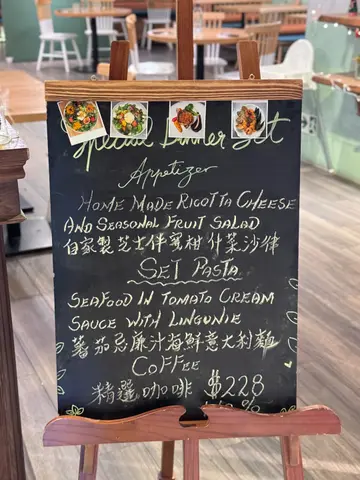 Special Dinner Set
Appetizer
HOME MADE RICOTTA CHEESE
AND SEASONAL FRUIT SALAD
自家製芝士伴蜜柑什菜沙律
SET PASTA
SEAFOOD IN TOMATO CREAM
SAUCE WITH LINGUNIE
蕃茄忌廉汁海鮮意大利麵
COFFEE
精選咖啡 $228